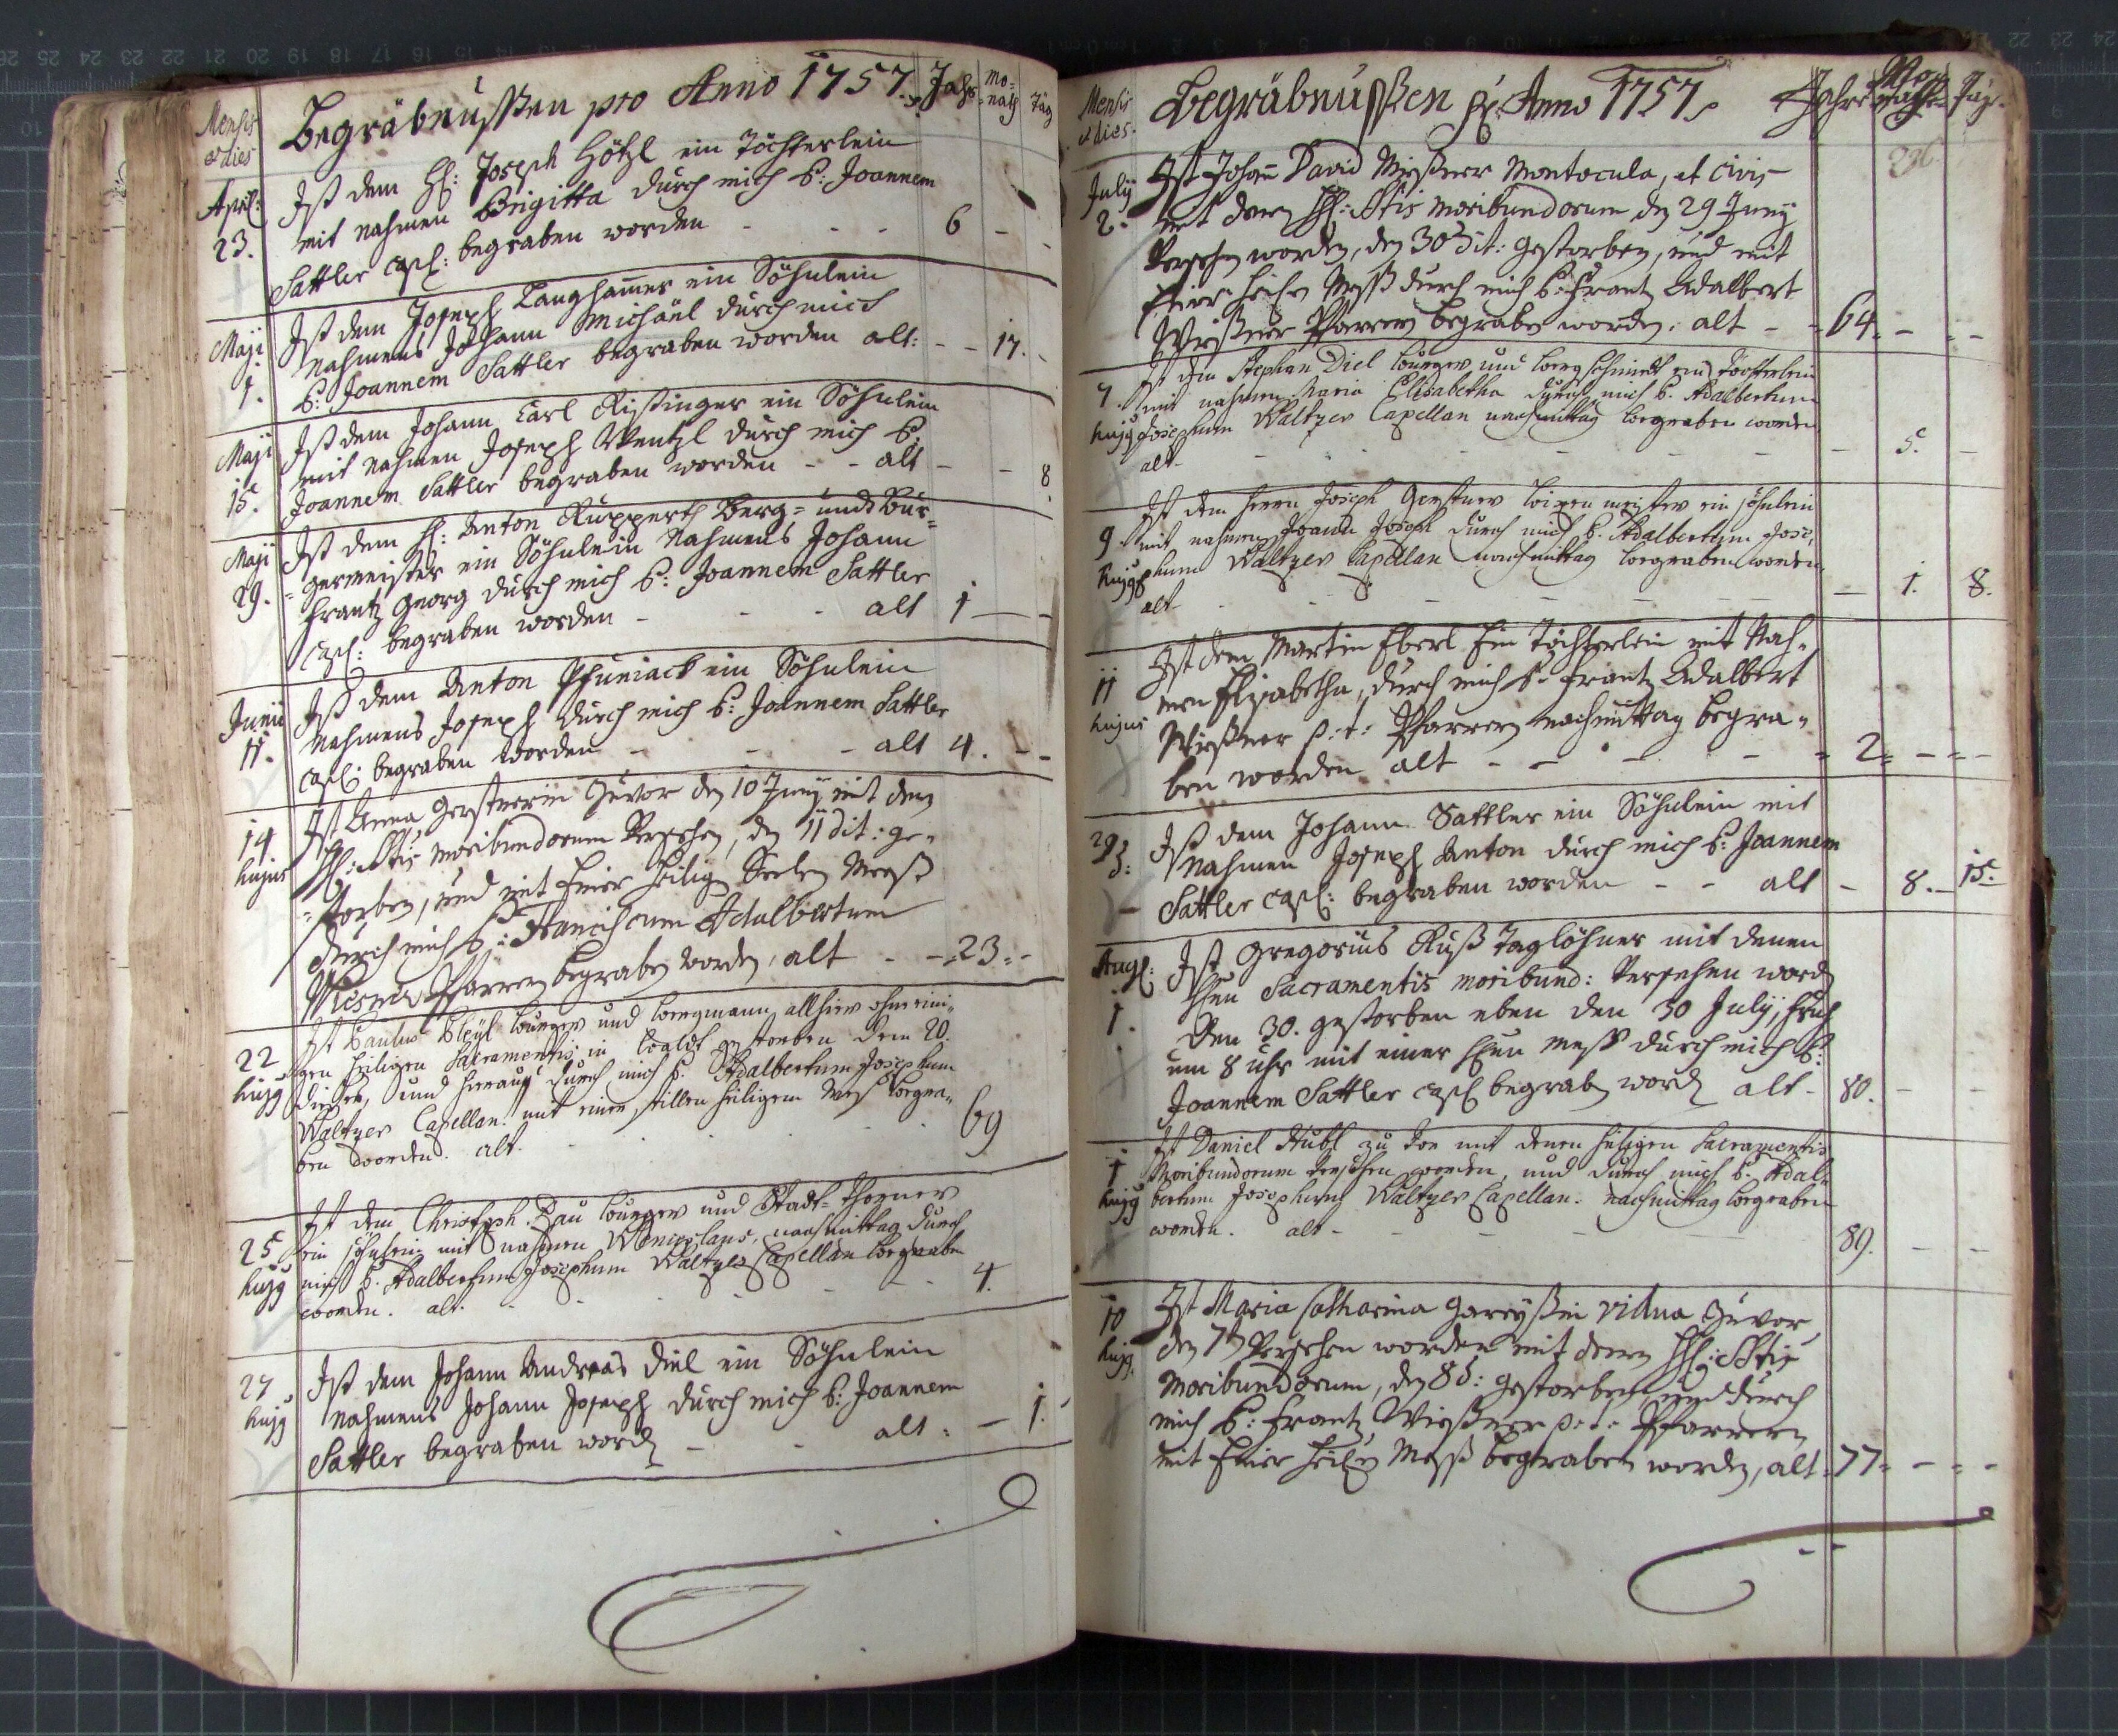 Mensis
et dies
Begräbnußen pro Anno 1757.
Jahr
mo=
nath
Täg
April:
23.
Ist dem H: Joseph Hötzl ein Töchterlein
mit nahmen Brigitta durch mich P: Joannem
Sattler Capl: begraben worden - - - 6 - -
Maji
1.
Ist dem Joseph Langhamer ein Söhnlein
Nahmens Johann Michäel durch mich
P: Joannem Sattler begraben worden alt: - - 17. -
Maji
15.
Ist dem Johann Carl Ristinger ein Söhnlein
mit Nahmen Joseph Wentzl durch mich P:
Joannem Sattler begraben worden - - alt - - 8.
Maji
29.
Ist dem H: Anton Rupperth Berg= und Bur=
germeister ein Söhnlein Nahmens Johann
Frantz Georg durch mich P: Joannem Sattler
Capl: begraben worden - - - alt 1 - -
Junii
11.
Ist dem Anton Pfuniack ein Söhnlein
Nahmens Joseph durch mich P: Joannem Sattler
Capl: begraben worden - - - alt 4. - -
14
hujus
Ist Anna Gerstnerin Zuvor den 10 Junij mit den
HH: Stis moribundorum Versehen, den 11 dit: ge=
=storben, und mit Einer Heilig Seelen Meeß
durch mich P: Franciscum Adalbertum
Pfarrern begraben worden, alt - - 23. -
22
hujg
Ist Paulus burger und bergmann allhier ohne eini=
gen heiligen Sacramentis in Waldt gestorben den 20.
dieses, und hierauf durch mich P. Adalbertum Josephum
Waltzer Capellan mit einer stillen heiligen Meß begra=
ben worden. alt. - - - - 69
25
hujg
Ist dem Christoph Rau burger und Stadt=
ein söhnlein mit nahmen Wenceslaus, nachmittag durch
mich P. Adalbertum Josephum Waltzer Capellan begraben
worden. alt. - - - - - 4.
27.
hujg
Ist dem Johann Andreas Diel ein Söhnlein
Nahmens Johann Joseph durch mich P: Joannem
Sattler begraben word - - alt: - 1.
Mensis
et dies.
Begräbnußen p: Anno 1757.
Jahre
Täge.
236.
July
2.
Ist Johann David Meißner Montocula, et Civis
mit denen HH: Stis moribundorum den 29 Junij
Versehen worden, den 30 dit: gestorben, und mit
Einer Heil: Meß durch mich P: Frantz Adalbert
Wießner Pfarrern begraben worden. alt - - 64. - - -
7.
hujg
Ist dem Stephan Diel burger und bergschmidt ein Töchterlein
mit nahmen Maria Elisabetha durch mich P. Adalbertum
Josephum Waltzer Capellan nachmittag begraben worden
alt - - - - - - 5. -
9.
hujg
Ist dem Herrn Joseph Gerstner ein söhnlein
mit nahmen Joann Joseph durch mich P. Adalbertum Jose=
phum Waltzer Capellan nachmittag begraben worden
alt - - - - - - 1. 8.
11
hujus
Ist dem Martin Eberl Ein Töchterlein mit Nah=
men Elisabetha, durch mich P: Frantz Adalbert
Wießner p: t: Pfarrern nachmittag begra=
ben worden alt - - - - - 2. - - -
29
Ist dem Johann Sattler ein Söhnlein mit
Nahmen Joseph Anton durch mich P: Joannem
Sattler Capl: begraben worden - - alt - 8. - 15.
Aug:
1.
Ist Gregorius Ruß Taglöhner mit denen
Sacramentis moribund: Versehen word
den 30. gestorben eben den 30 July, Früh
um 8 uhr mit einer Meß durch mich P:
Joannem Sattler Capl begrab word alt - 80. - -
1
hujg
Ist Daniel Hubl mit denen heiligen Sacramentis
Moribundorum versehen worden, und durch mich P. Adal=
bertum Josephum Waltzer Capellan. nachmittag begraben
worden. alt - - - - - 89. - -
10
hujg.
Ist Maria Catharina vidua Zuvor
den 7ten Versehen worden mit denen HH: Stis
Moribundorum, den 8 d: gestorben, und durch
mich P: Frantz Wießner p: t: Pfarrern
mit Einer Heil: Meß begraben worden, alt. 77. - - -